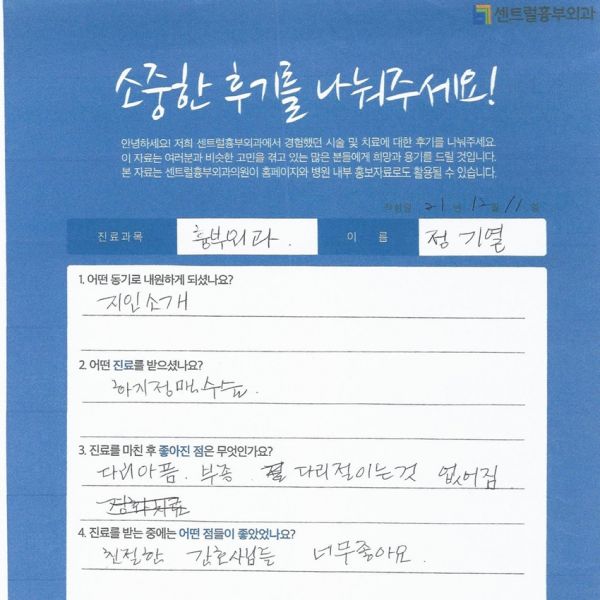 센트럴흉부외과
소중한 후기를 나눠주세요!
안녕하세요! 저희 센트럴흉부외과에서 경험했던 시술 및 치료에 대한 후기를 나눠주세요.
이 자료는 여러분과 비슷한 고민을 겪고 있는 많은 분들에게 희망과 용기를 드릴 것입니다.
본 자료는 센트럴흉부외과의원이 홈페이지와 병원 내부 홍보자료로도 활용될 수 있습니다.
작성일 21 년 12 월 11 일
진료과목 흉부외과. 이 름 정 기열
1. 어떤 동기로 내원하게 되셨나요?
지인소개
2. 어떤 진료를 받으셨나요?
하지정맥수술.
3. 진료를 마친 후 좋아진 점은 무엇인가요?
다리아픔. 부종. 다리절이는것 없어짐
4. 진료를 받는 중에는 어떤 점들이 좋았었나요?
친절한 간호사님들 너무좋아요.